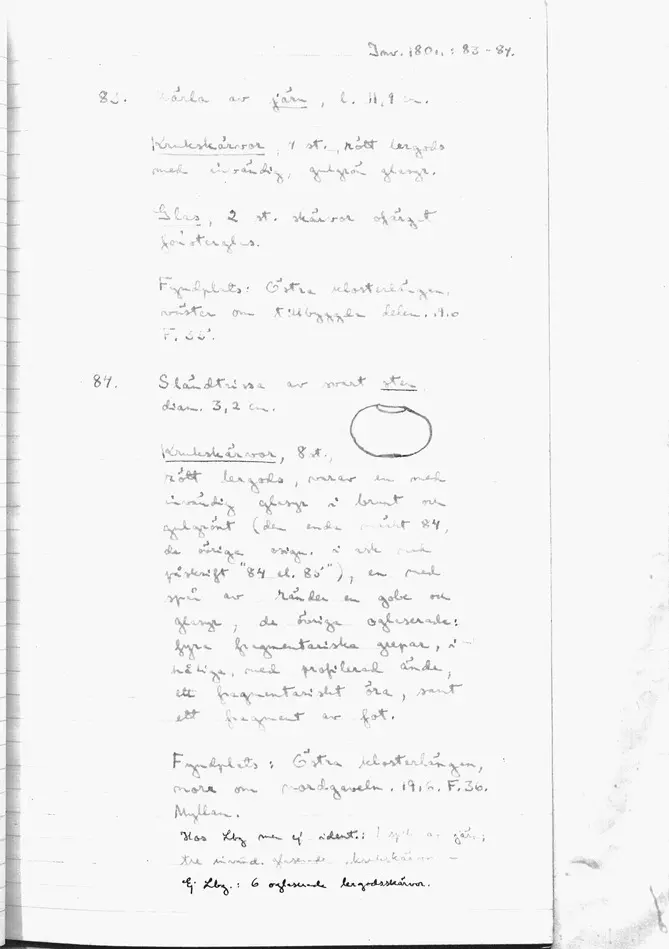 Inv. 1801.: 83-84.
83. av järn, l. 11,9 cm.
Krukskärvor, 1 st., rött lergods
med invändig, gulgrön glasyr.
Glas, 2 st. skärvor ofärgat
fönsterglas.
Fyndplats: Östra klosterlängen,
väster om tillbyggda delen. 1910
F. 35.
84. Sländtrissa av svart sten
diam. 3,2 cm.
Krukskärvor, 8 st.,
rött lergods, varav en med
invändig glasyr i brunt och
gulgrönt (den enda märkt 84,
de övriga osign. i ask med
påskrift "84 el. 85"), en med
spår av ränder en gobe och
glasyr, de övriga oglaserade:
fyra fragmentariska grepar, i-
håliga, med profilerad ände,
ett fragmentariskt öra, samt
ett fragment av fot.
Fyndplats: Östra klosterlängen,
norr om nordgaveln. 1916. F. 36.
Myllan.
Hos Lbg men ej ident.: 1 av järn;
tre invänd. glaserade krukskärvor -
Ej Lbg.: 6 oglaserade lergodsskärvor.